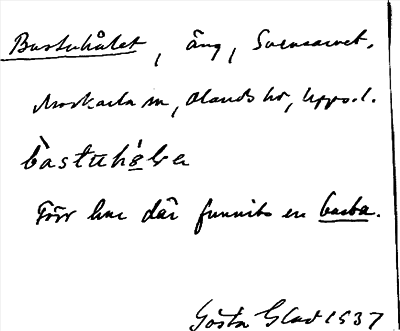 Bastuhålet, äng, Svensarvet.
Morkarla sn, Olands hd, Upps. l.
bàstuhó̱le
Förr har där funnits en basta.
Gösta Glad 1937